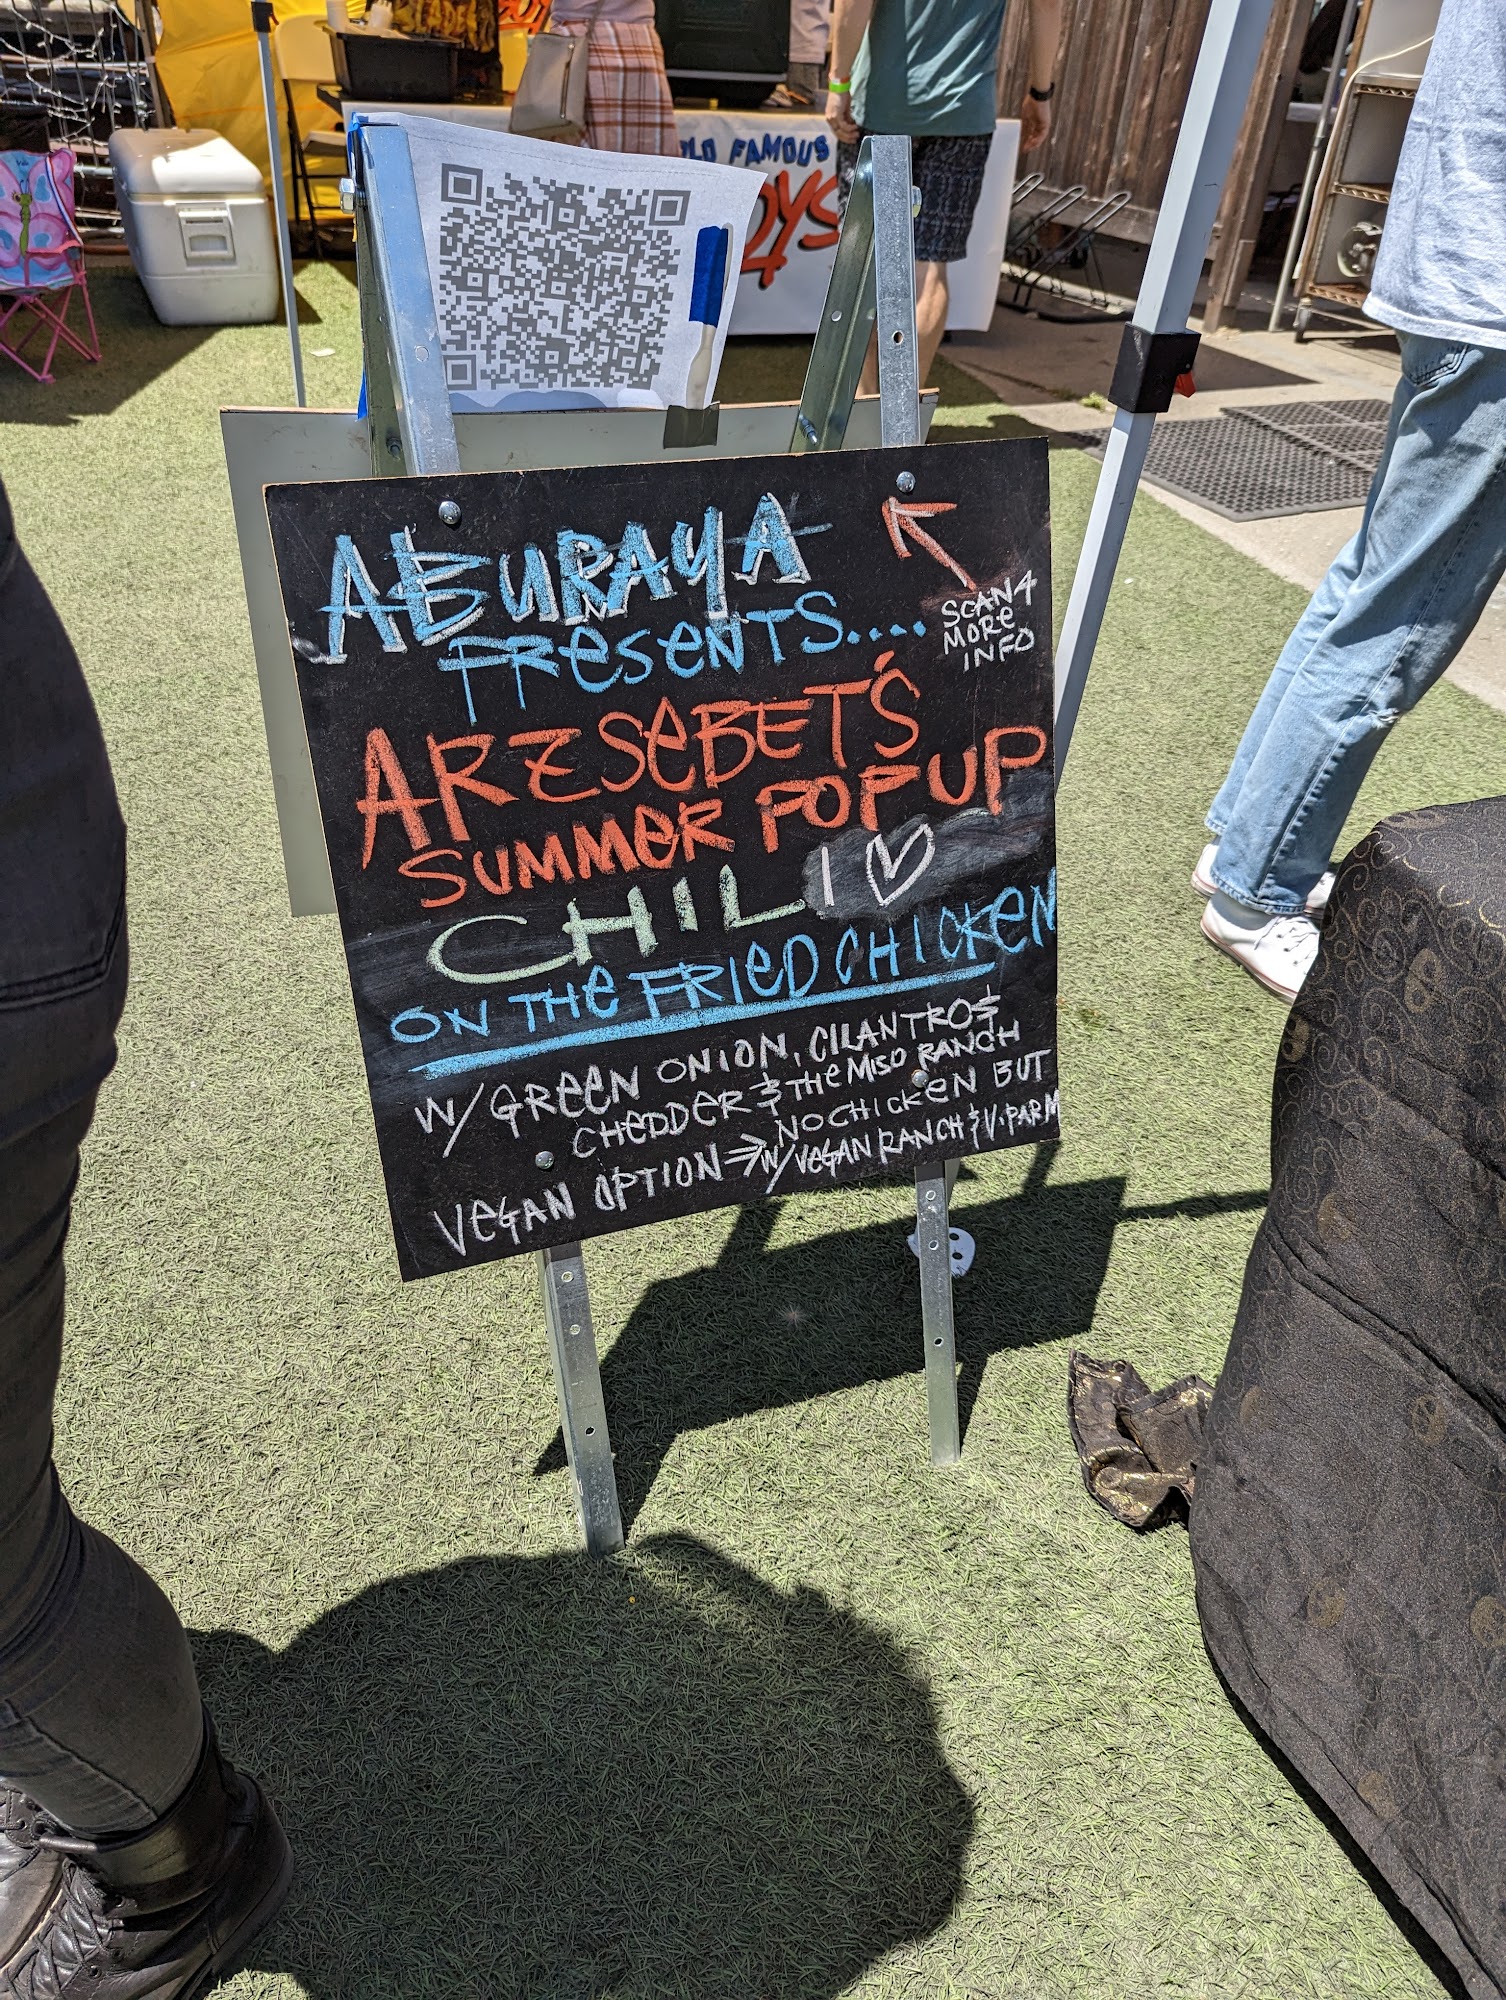 FAMOUS
ABURAYA
PRESENTS....
SCAN 4
MORE
INFO
ARZSEBET'S
SUMMER POP UP
CHILI ♡
ON THE FRIED CHICKEN
W/ GREEN ONION, CILANTRO &
CHEDDER & THE MISO RANCH
VEGAN OPTION ⇒ NO CHICKEN BUT
W/ VEGAN RANCH & V. PARM